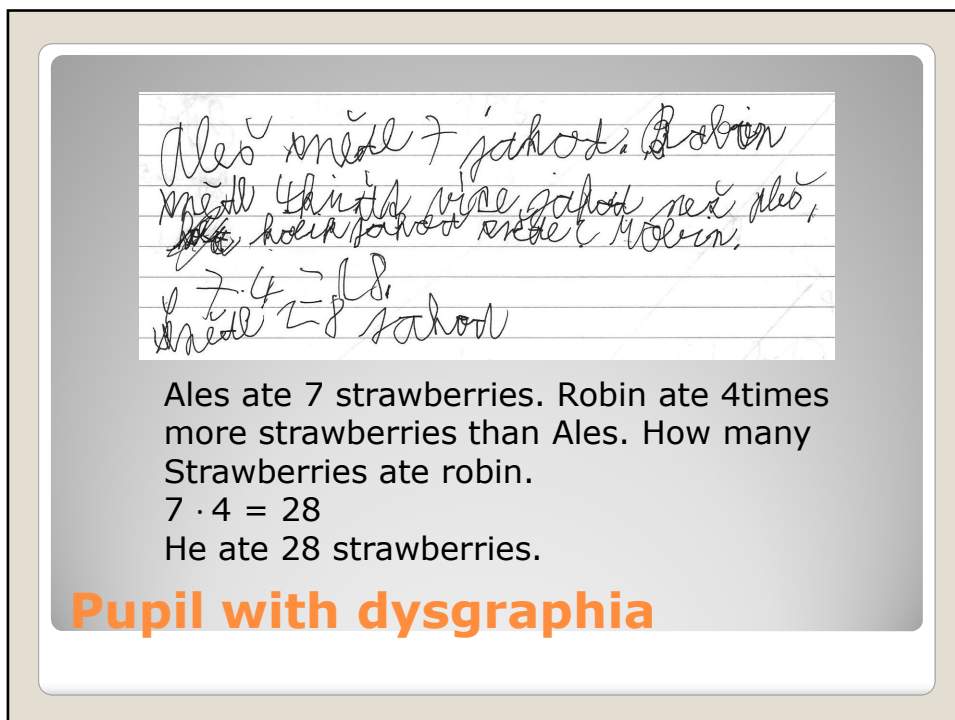 Aleš snědl 7 jahod. Robin
snědl 4krát více jahod než aleš,
kolik jahod snědl Robin.
7.4 = 28.
Snědl 28 jahod
Ales ate 7 strawberries. Robin ate 4times
more strawberries than Ales. How many
Strawberries ate robin.
7 · 4 = 28
He ate 28 strawberries.
Pupil with dysgraphia